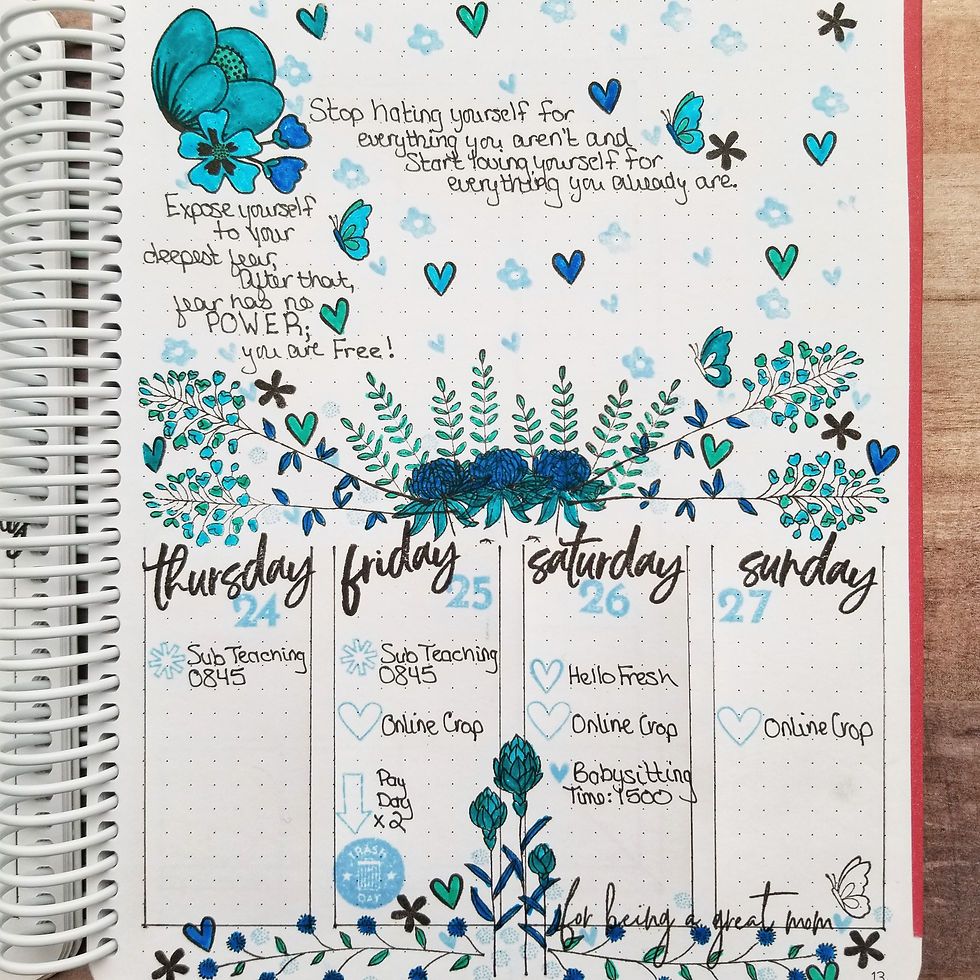 Stop hating yourself for
everything you aren't and
Start loving yourself for
everything you already are.
Expose yourself
to your
deepest fear,
After that,
fear has no
POWER;
you are Free!
thursday
24
Sub Teaching
0845
friday
25
Sub Teaching
0845
Online Crop
Pay
Day
x2
TRASH
DAY
saturday
26
Hello Fresh
Online Crop
Babysitting
Time: 1500
sunday
27
Online Crop
for being a great mom
13